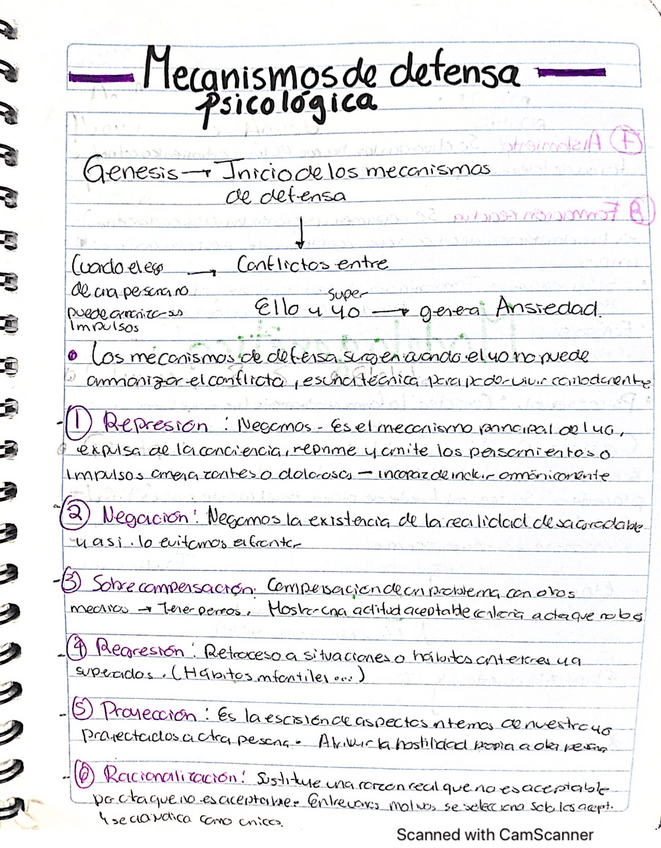 Mecanismos de defensa
psicológica
Genesis → Inicio de los mecanismos
de defensa
Cuando el ego → Conflictos entre
de una persona no
puede armonizar sus
impulsos
Super
Ello y yo → genera Ansiedad.
• Los mecanismos de defensa surgen cuando el yo no puede
armonizar el conflicto, es una técnica para poder vivir
- 1 Represión : Negamos - Es el mecanismo principal del yo,
expulsa de la conciencia, reprime y omite los pensamientos o
impulsos amenazantes o dolorosos - incapaz de incluir armónicamente
- 2 Negación : Negamos la existencia de la realidad desagradable
y asi lo evitamos afrontar
- 3 Sobrecompensación: Compensación de un problema con otros
medios → Tener perros. Mostrar una actitud aceptable contraria a otra que no lo es
- 4 Regresión : Retroceso a situaciones o hábitos anteriores ya
superados. (Hábitos infantiles ...)
- 5 Proyección : Es la escisión de aspectos internos de nuestro yo
proyectados a otra persona. Atribuir la hostilidad propia a otra persona
- 6 Racionalización : Sustituye una razon real que no es aceptable
por otra que no es aceptable. Entre varios motivos se selecciona solo los acept.
como unicos.
7 Aislamiento
8 Formación reactiva
Scanned with CamScanner